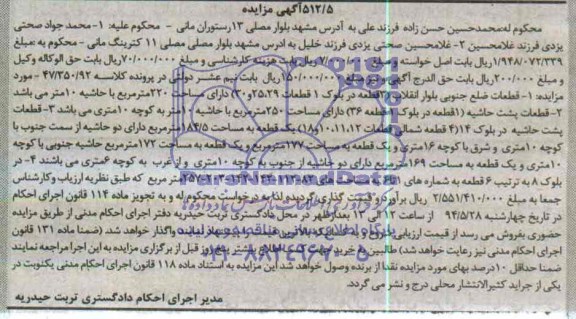 ۵۱۲/۵آگهی مزایده
محکوم له:محمدحسین حسن زاده فرزند علی به آدرس مشهد بلوار مصلی ۱۳رستوران مانی - محکوم علیه: ۱-محمد جواد صحتی
یزدی فرزند غلامحسین ۲- غلامحسین صحتی یزدی فرزند خلیل به ادرس مشهد بلوار مصلی مصلی ۱۱ کترینگ مانی - محکوم به :مبلغ
۱/۹۴۸/۰۷۲/۳۳۹ریال بابت اصل خواسته و مبلغ ریال بابت هزینه کارشناسی و مبلغ ۷۰/۰۰۰/۰۰۰ریال بابت حق الوکاله وکیل
و مبلغ ۲۰۰/۰۰۰ریال بابت حق الدرج آگهی و مبلغ ۱۵۰/۰۰۰/۰۰۰ریال بابت نیم عشر دولتی در پرونده کلاسه ۴۷/۳۵۰/۹۲ - مورد
مزایده: ۱- قطعات ضلع جنوبی بلوار انقلاب (۳قطعه در بلوک ۱ قطعات ۲۵،۲۹و۳۰) دارای مساحت ۲۲۰مترمربع با حاشیه ۱۰متر می باشد
۲-قطعات پشت حاشیه (۱قطعه در بلوک ۱ قطعه ۳۶) دارای مساحت ۲۵۰مترمربع با حاشیه ۱۰متر به کوچه ۱۰متری می باشد ۳-قطعات
پشت حاشیه در بلوک ۱۴(۴ قطعه شمالی قطعات ۱۰،۱۱،۱۲و۱۸) یک قطعه به مساحت ۱۸۴/۵مترمربع دارای دو حاشیه از سمت جنوب با
کوچه ۱۰متری و شرق با کوچه ۱۶متری و یک قطعه به مساحت ۱۷۷مترمربع و یک قطعه به مساحت ۱۷۲مترمربع حاشیه جنوبی با کوچه
۱۰متری و یک قطعه به مساحت ۱۶۹مترمربع دارای دو حاشیه از جنوب به کوچه ۱۰متری و از غرب به کوچه ۶متری می باشند ۴- در
بلوک ۸ به ترتیب ۶ قطعه به شماره های به مساحت های مترمربع که طبق نظریه ارزیاب وکارشناس
جمعا به مبلغ ۲/۵۵۱/۴۱۰/۰۰۰ ریال برآورد و قیمت گذاری گردیده بنا به درخواست محکوم له و به تجویز ماده ۱۱۴ قانون اجرای احکام
در تاریخ چهارشنبه ۹۴/۵/۲۸ از ساعت ۱۲ الی ۱۳ بعدازظهر در محل دادگستری تربت حیدریه دفتر اجرای احکام مدنی از طریق مزایده
حضوری بفروش می رسد از قیمت ارزیابی شروع و به کسانی که بالاترین قیمت را پیشنهاد نمایند واگذار خواهد شد (ضمنا ماده ۱۳۱ قانون
اجرای احکام مدنی نیز رعایت خواهد شد) طالبین به خرید جهت کسب اطلاع پنج روز قبل از برگزاری مزایده به این اجرا مراجعه نمایند
ضمنا حداقل ۱۰درصد بهای مورد مزایده نقدا از برنده وصول خواهد شد این مزایده به استناد ماده ۱۱۸ قانون اجرای احکام مدنی یکنوبت در
یکی از جراید کثیرالانتشار محلی درج و نشر می گردد.
مدیر اجرای احکام دادگستری تربت حیدریه